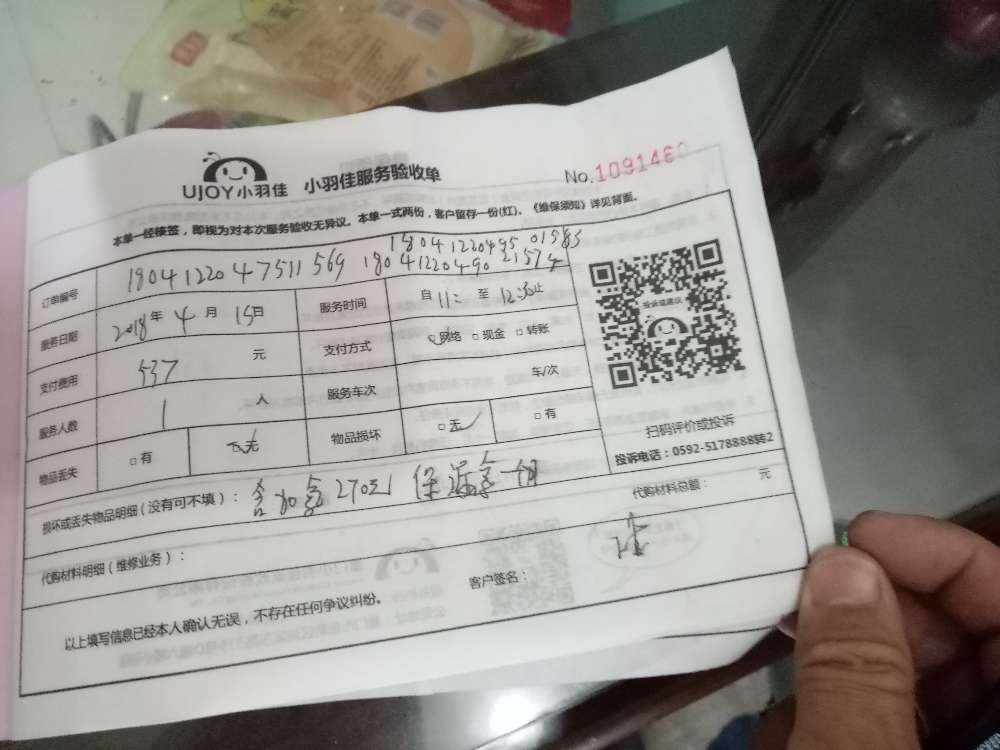 UJOY小羽佳 小羽佳服务验收单 No.109146
本单一经接签，即视为对本次服务验收无异议。本单一式两份，客户留存一份(红)。《维保须知》详见背面。
18041220495 01583
订单编号 18041220 47511 569 18041220490 21574
服务日期 2018年 4 月 15日 服务时间 自 11: 至 12:30止
支付费用 537 元 支付方式 □网络 □现金 □转账
服务人数 1 人 服务车次 车/次
物品丢失 □有 □无 物品损坏 □无 □有
投诉或建议
扫码评价或投诉
投诉电话：0592-5178888转2
损坏或丢失物品明细（没有可不填）： 含加 270元 保
代购材料明细（维修业务）： 代购材料总额： 元
客户签名：
以上填写信息已经本人确认无误，不存在任何争议纠纷。